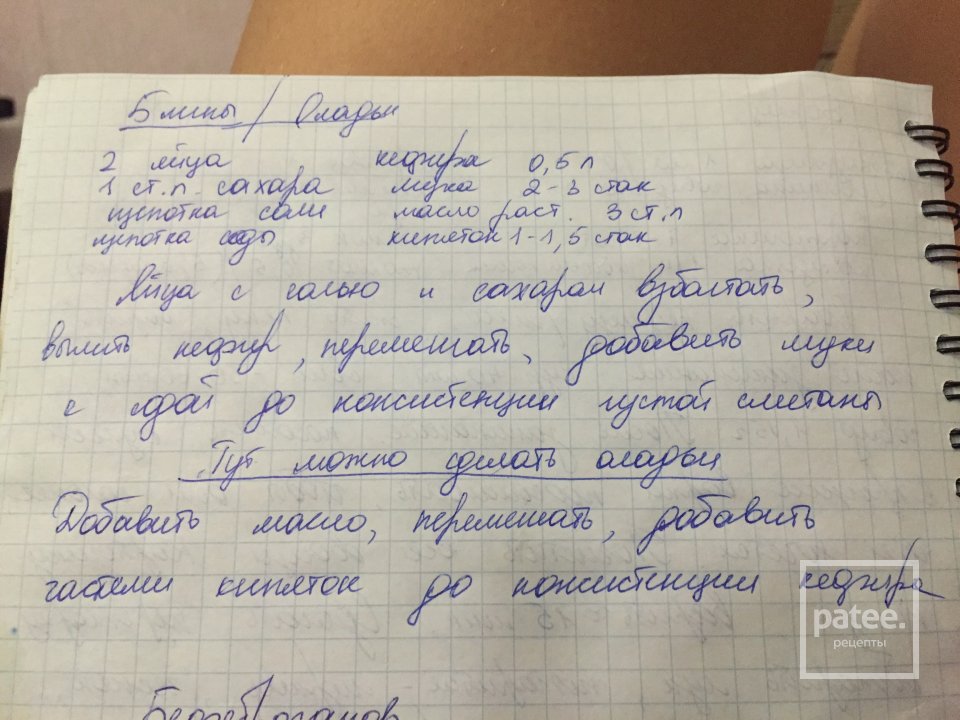 Блины / Оладьи
2 яйца кефира 0,5 л
1 ст.л. сахара мука 2-3 стак
щепотка соли масло раст. 3 ст.л
щепотка соды кипяток 1-1,5 стак
Яйца с солью и сахаром взболтать,
вылить кефир, перемешать, добавить муки
с содой до консистенции густой сметаны
Тут можно сделать оладьи
Добавить масло, перемешать, добавить
частями кипяток до консистенции кефира
patee.
рецепты